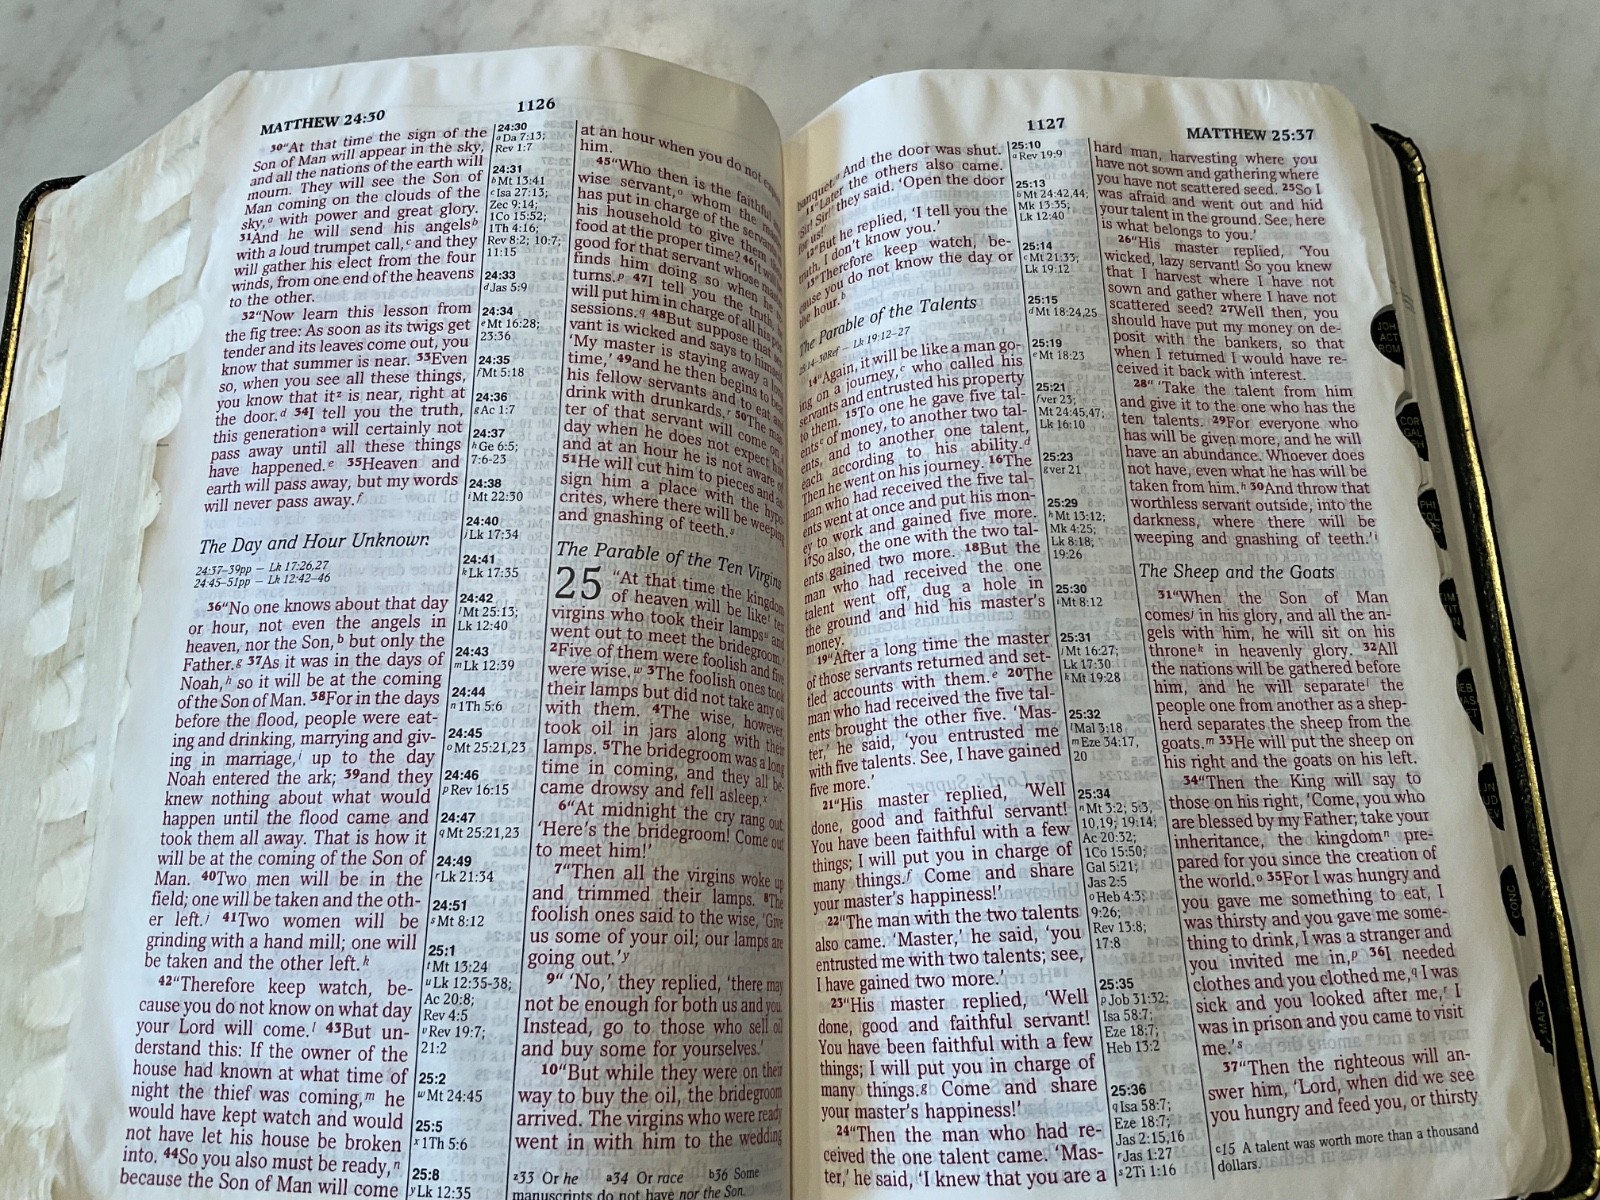 MATTHEW 24:30
1126
30“At that time the sign of the
Son of Man will appear in the sky,
and all the nations of the earth will
mourn. They will see the Son of
Man coming on the clouds of the
sky, with power and great glory.
31And he will send his angels b
with a loud trumpet call, c and they
will gather his elect from the four
winds, from one end of the heavens
to the other.
32“Now learn this lesson from
the fig tree: As soon as its twigs get
tender and its leaves come out, you
know that summer is near. 33Even
so, when you see all these things,
you know that it z is near, right at
the door. d 34I tell you the truth,
this generation a will certainly not
pass away until all these things
have happened. e 35Heaven and
earth will pass away, but my words
will never pass away. f
The Day and Hour Unknown
24:37–39pp — Lk 17:26,27
24:45–51pp — Lk 12:42–46
36“No one knows about that day
or hour, not even the angels in
heaven, nor the Son, b but only the
Father. g 37As it was in the days of
Noah, h so it will be at the coming
of the Son of Man. 38For in the days
before the flood, people were eat-
ing and drinking, marrying and giv-
ing in marriage, i up to the day
Noah entered the ark; 39and they
knew nothing about what would
happen until the flood came and
took them all away. That is how it
will be at the coming of the Son of
Man. 40Two men will be in the
field; one will be taken and the oth-
er left. j 41Two women will be
grinding with a hand mill; one will
be taken and the other left. k
42“Therefore keep watch, be-
cause you do not know on what day
your Lord will come. l 43But un-
derstand this: If the owner of the
house had known at what time of
night the thief was coming, m he
would have kept watch and would
not have let his house be broken
into. 44So you also must be ready, n
because the Son of Man will come
24:30
a Da 7:13;
Rev 1:7
24:31
b Mt 13:41
c Isa 27:13;
Zec 9:14;
1Co 15:52;
1Th 4:16;
Rev 8:2; 10:7;
11:15
24:33
d Jas 5:9
24:34
e Mt 16:28;
23:36
24:35
f Mt 5:18
24:36
g Ac 1:7
24:37
h Ge 6:5;
7:6-23
24:38
i Mt 22:30
24:40
j Lk 17:34
24:41
k Lk 17:35
24:42
l Mt 25:13;
Lk 12:40
24:43
m Lk 12:39
24:44
n 1Th 5:6
24:45
o Mt 25:21,23
24:46
p Rev 16:15
24:47
q Mt 25:21,23
24:49
r Lk 21:34
24:51
s Mt 8:12
25:1
t Mt 13:24
u Lk 12:35-38;
Ac 20:8;
Rev 4:5
v Rev 19:7;
21:2
25:2
w Mt 24:45
25:5
x 1Th 5:6
25:8
y Lk 12:35
at an hour when you do not
him.
45“Who then is the faithful
wise servant, o whom the
has put in charge of the
his household to give them
food at the proper time? 46
good for that servant whose
finds him doing so when he
turns. p 47I tell you the truth,
will put him in charge of all his
sessions. q 48But suppose that
vant is wicked and says to himself
‘My master is staying away a
time,’ 49and he then begins to
his fellow servants and to eat
drink with drunkards. r 50The
ter of that servant will come
day when he does not expect
and at an hour he is not aware
51He will cut him to pieces and
sign him a place with the hypo-
crites, where there will be weeping
and gnashing of teeth. s
The Parable of the Ten Virgins
25 “At that time the kingdom
of heaven will be like t ten
virgins who took their lamps u and
went out to meet the bridegroom. v
2Five of them were foolish and five
were wise. w 3The foolish ones took
their lamps but did not take any oil
with them. 4The wise, however,
took oil in jars along with their
lamps. 5The bridegroom was a long
time in coming, and they all be-
came drowsy and fell asleep. x
6“At midnight the cry rang out:
‘Here’s the bridegroom! Come out
to meet him!’
7“Then all the virgins woke up
and trimmed their lamps. 8The
foolish ones said to the wise, ‘Give
us some of your oil; our lamps are
going out.’ y
9“ ‘No,’ they replied, ‘there may
not be enough for both us and you.
Instead, go to those who sell oil
and buy some for yourselves.’
10“But while they were on their
way to buy the oil, the bridegroom
arrived. The virgins who were ready
went in with him to the wedding
z33 Or he a34 Or race b36 Some
manuscripts do not have nor the Son.
1127
MATTHEW 25:37
banquet. And the door was shut.
11“Later the others also came.
‘Sir! Sir!’ they said. ‘Open the door
for us!’
12“But he replied, ‘I tell you the
truth, I don’t know you.’
13“Therefore keep watch, be-
cause you do not know the day or
the hour. b
The Parable of the Talents
25:14–30Ref — Lk 19:12–27
14“Again, it will be like a man go-
ing on a journey, c who called his
servants and entrusted his property
to them. 15To one he gave five tal-
ents c of money, to another two tal-
ents, and to another one talent,
each according to his ability. d
Then he went on his journey. 16The
man who had received the five tal-
ents went at once and put his mon-
ey to work and gained five more.
17So also, the one with the two tal-
ents gained two more. 18But the
man who had received the one
talent went off, dug a hole in
the ground and hid his master’s
money.
19“After a long time the master
of those servants returned and set-
tled accounts with them. e 20The
man who had received the five tal-
ents brought the other five. ‘Mas-
ter,’ he said, ‘you entrusted me
with five talents. See, I have gained
five more.’
21“His master replied, ‘Well
done, good and faithful servant!
You have been faithful with a few
things; I will put you in charge of
many things. f Come and share
your master’s happiness!’
22“The man with the two talents
also came. ‘Master,’ he said, ‘you
entrusted me with two talents; see,
I have gained two more.’
23“His master replied, ‘Well
done, good and faithful servant!
You have been faithful with a few
things; I will put you in charge of
many things. g Come and share
your master’s happiness!’
24“Then the man who had re-
ceived the one talent came. ‘Mas-
ter,’ he said, ‘I knew that you are a
25:10
a Rev 19:9
25:13
b Mt 24:42,44;
Mk 13:35;
Lk 12:40
25:14
c Mt 21:33;
Lk 19:12
25:15
d Mt 18:24,25
25:19
e Mt 18:23
25:21
f ver 23;
Mt 24:45,47;
Lk 16:10
25:23
g ver 21
25:29
h Mt 13:12;
Mk 4:25;
Lk 8:18;
19:26
25:30
i Mt 8:12
25:31
j Mt 16:27;
Lk 17:30
k Mt 19:28
25:32
l Mal 3:18
m Eze 34:17,
20
25:34
n Mt 3:2; 5:3,
10,19; 19:14;
Ac 20:32;
1Co 15:50;
Gal 5:21;
Jas 2:5
o Heb 4:3;
9:26;
Rev 13:8;
17:8
25:35
p Job 31:32;
Isa 58:7;
Eze 18:7;
Heb 13:2
25:36
q Isa 58:7;
Eze 18:7;
Jas 2:15,16
r Jas 1:27
s 2Ti 1:16
hard man, harvesting where you
have not sown and gathering where
you have not scattered seed. 25So I
was afraid and went out and hid
your talent in the ground. See, here
is what belongs to you.’
26“His master replied, ‘You
wicked, lazy servant! So you knew
that I harvest where I have not
sown and gather where I have not
scattered seed? 27Well then, you
should have put my money on de-
posit with the bankers, so that
when I returned I would have re-
ceived it back with interest.
28“ ‘Take the talent from him
and give it to the one who has the
ten talents. 29For everyone who
has will be given more, and he will
have an abundance. Whoever does
not have, even what he has will be
taken from him. h 30And throw that
worthless servant outside, into the
darkness, where there will be
weeping and gnashing of teeth.’ i
The Sheep and the Goats
31“When the Son of Man
comes j in his glory, and all the an-
gels with him, he will sit on his
throne k in heavenly glory. 32All
the nations will be gathered before
him, and he will separate l the
people one from another as a shep-
herd separates the sheep from the
goats. m 33He will put the sheep on
his right and the goats on his left.
34“Then the King will say to
those on his right, ‘Come, you who
are blessed by my Father; take your
inheritance, the kingdom n pre-
pared for you since the creation of
the world. o 35For I was hungry and
you gave me something to eat, I
was thirsty and you gave me some-
thing to drink, I was a stranger and
you invited me in, p 36I needed
clothes and you clothed me, q I was
sick and you looked after me, r I
was in prison and you came to visit
me.’ s
37“Then the righteous will an-
swer him, ‘Lord, when did we see
you hungry and feed you, or thirsty
c15 A talent was worth more than a thousand
dollars.
JOH
ACT
ROM
COR
GAL
CONC
MAPS